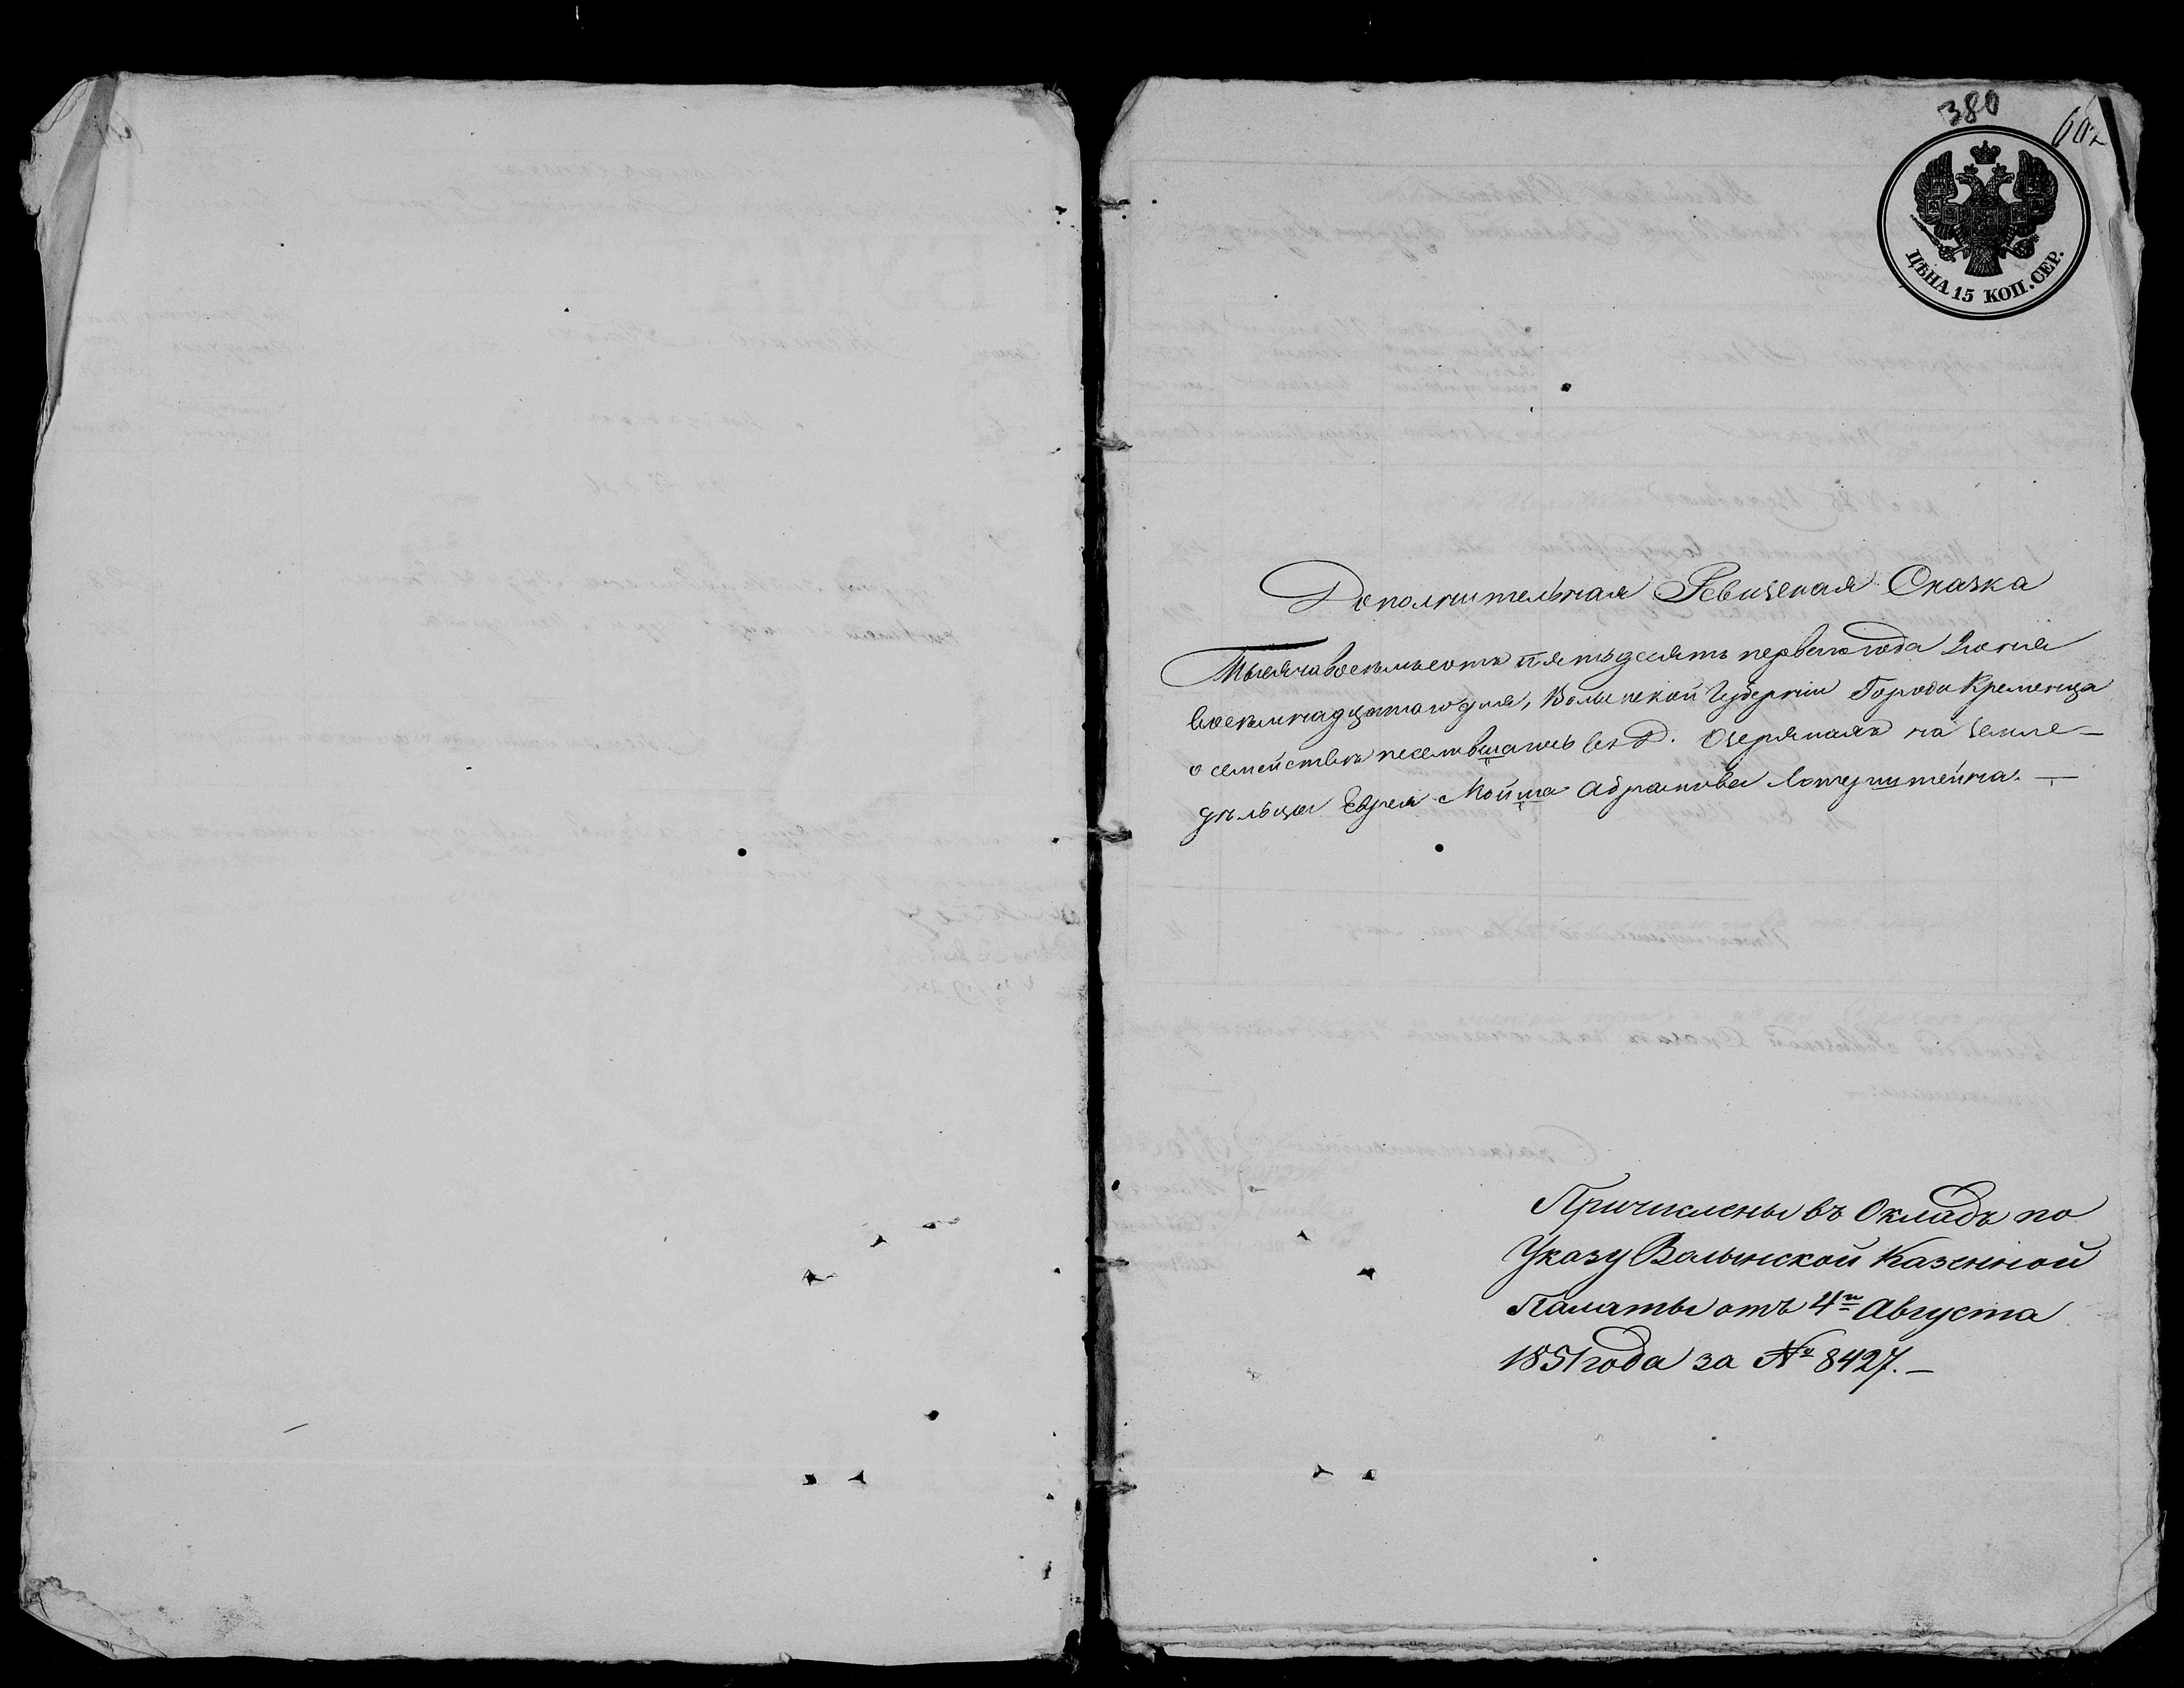 380
602
ЦѢНА 15 КОП. СЕР.
Дополнительная Ревизская Сказка
Тысяча восемьсотъ пятьдесятъ перваго года Іюня
восемнадцатаго дня, Волынской Губерніи Города Кременца
о семействѣ поселившагось въ д. на земле-
дѣльца Еврея Мойша Абрамова
Причислены въ Окладъ по
Указу Волынской Казенной
Палаты отъ 4го Августа
1851 года за № 8427.-